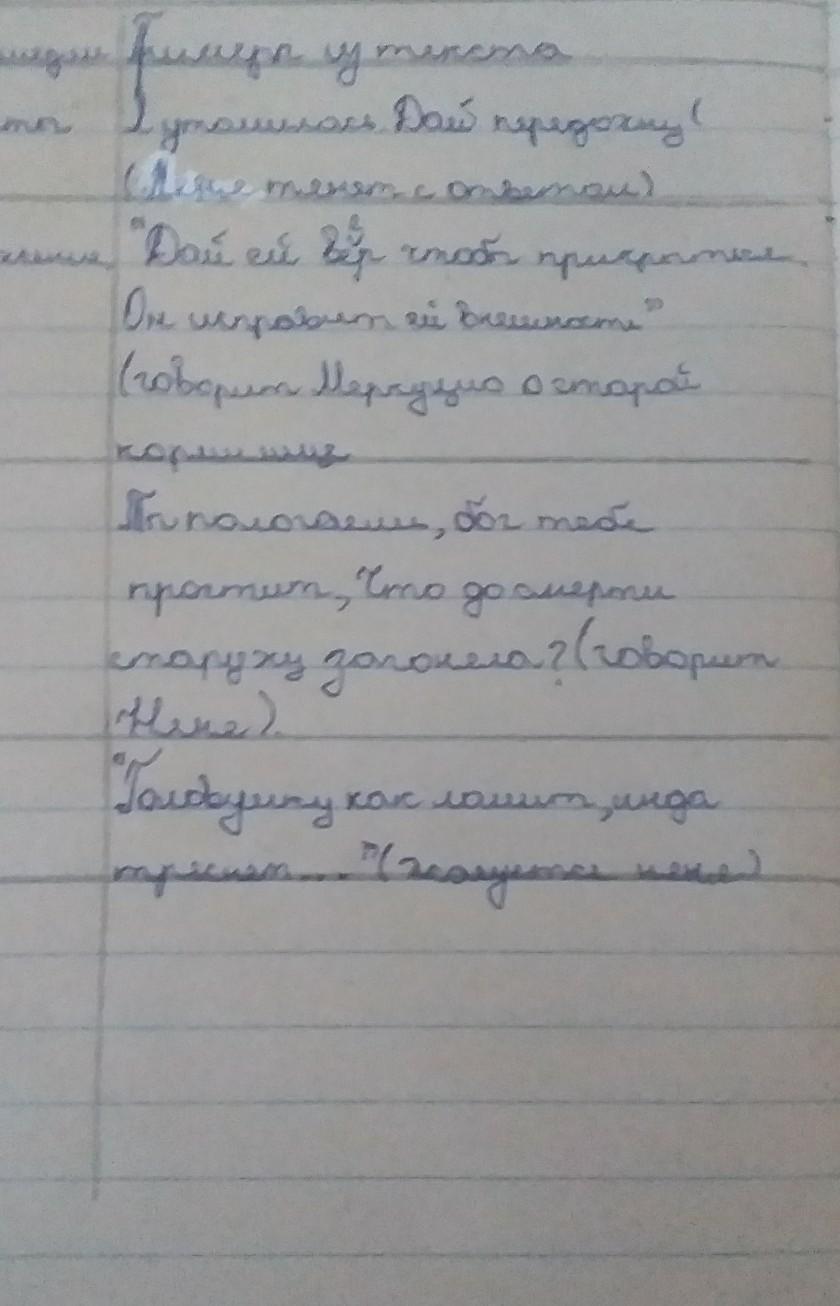 Пример из текста
утомилась. Дай передохну!
(Няне тянет с ответом)
"Дай ей веер чтобы прикрыться
Он исправит ей внешность"
(говорит Меркуцио о старой
кормилице
Ты пологаешь, бог тебе
простит, Что до смерти
старуху загоняла? (говорит
Няне).
"Головушку как ломит, инда
треснет..." (жалуется няне)